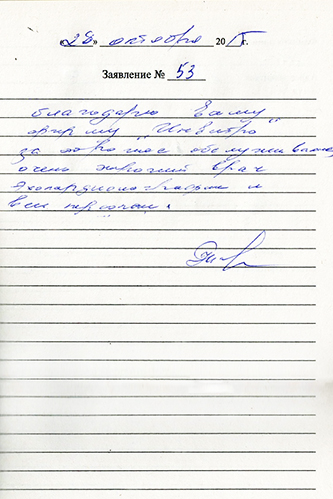 «28» октября 2015 г.
Заявление № 53
благодарю Вашу
фирму "Инвитро"
за хорошее обслуживание
очень хороший врач
Эхокардиографии и
весь персонал.